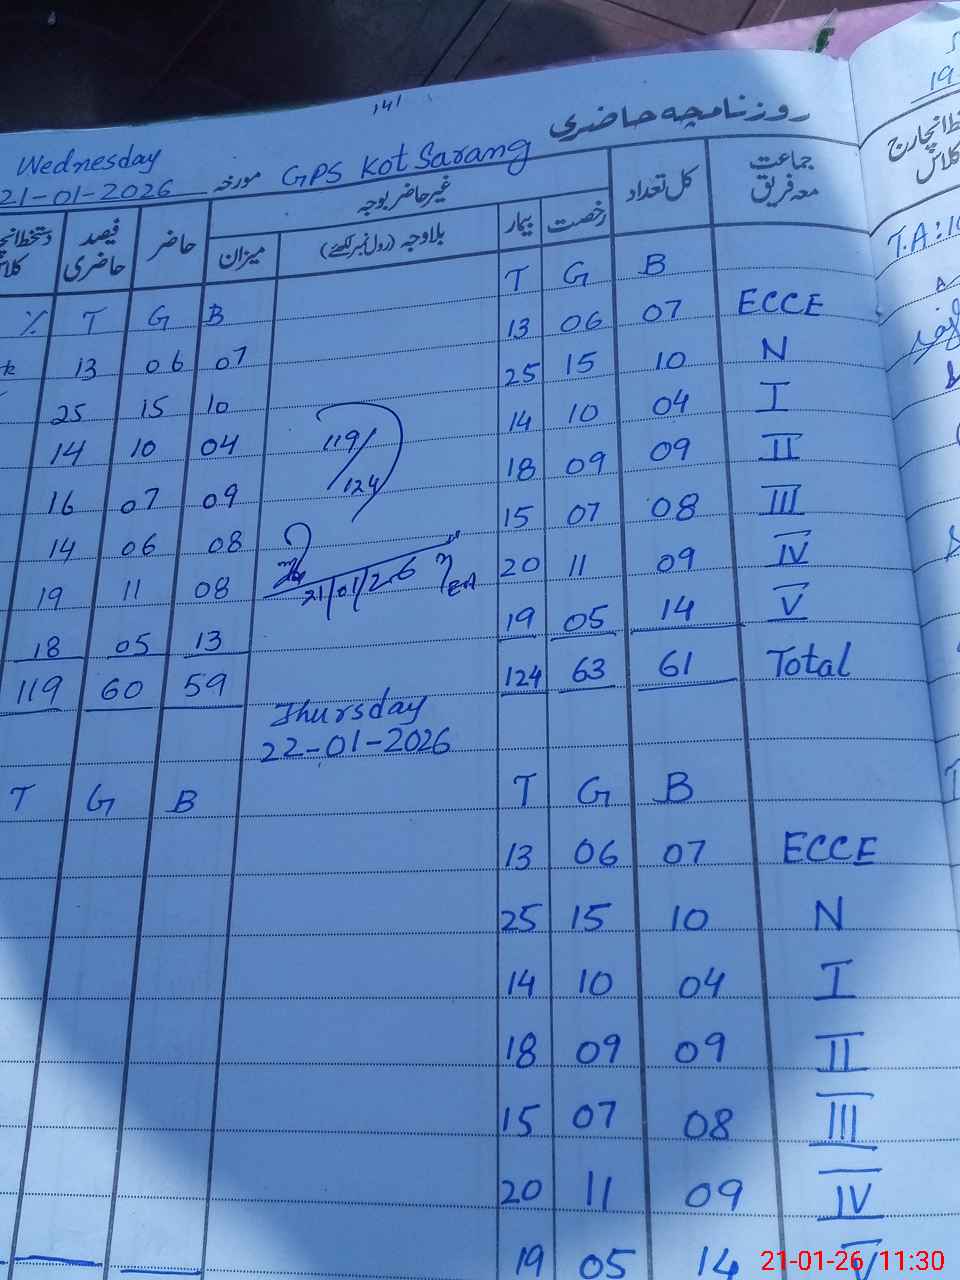 141
روزنامچہ حاضری
Wednesday
21-01-2026 مورخہ GPS Kot Sarang
جماعت معہ فریق کل تعداد غیر حاضر بوجہ حاضر فیصد حاضری
رخصت بیمار بلاوجہ (رول نمبر لکھئے) میزان
% T G B T G B
13 06 07 13 06 07 ECCE
25 15 10 25 15 10 N
14 10 04 14 10 04 I
16 07 09 18 09 09 II
14 06 08 15 07 08 III
19 11 08 20 11 09 IV
18 05 13 19 05 14 V
119 60 59 124 63 61 Total
119/124
21/01/2026
Thursday
22-01-2026
T G B T G B
13 06 07 ECCE
25 15 10 N
14 10 04 I
18 09 09 II
15 07 08 III
20 11 09 IV
19 05 14 V
19-
انچارج
کلاس
T.A:10
21-01-26 11:30